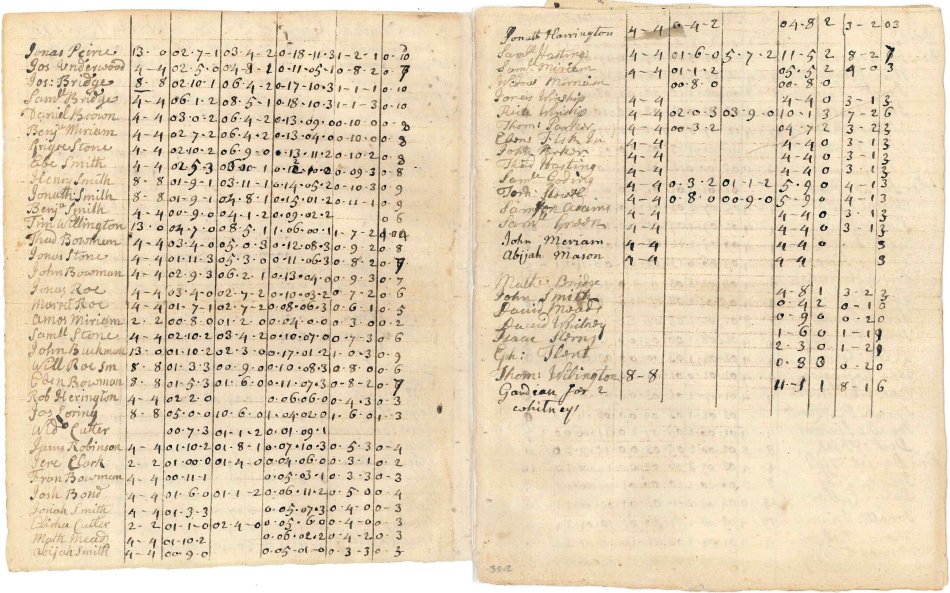 Jonas Peirc 13-0 02-7-1 03-4-2 0-18-11-3 1-2-1 0-10
Jos Underwood 4-4 02-5-0 04-8-2 0-11-05-1 0-8-2 0-7
Jos: Bridge 8-8 02-10-1 06-4-2 0-17-10-3 1-1-1 0-10
Samll Bridge 4-4 06-1-2 08-5-1 0-18-10-3 1-3-1 0-10
Daniel Brown 4-4 03-0-2 06-4-2 0-13-09-0 0-10-0 0-8
Benja Miriam 4-4 02-7-2 06-4-2 0-13-04-0 0-10-0 0-8
Stone 4-4 02-10-2 06-9-0 0-13-11-2 0-10-2 0-8
Ebe Smith 4-4 02-5-3 0-09-3 0-8
Henry Smith 8-8 01-9-1 03-11-1 0-14-05-2 0-10-3 0-9
Jonath Smith 8-8 01-9-1 04-8-1 0-15-01-2 0-11-1 0-9
Benja Smith 4-4 00-9-0 04-1-2 0-09-02-2 0 6
Tim Wellington 13-0 04-7-0 08-5-1 1-06-00-1 1-7-2
Thad Bowman 4-4 03-4-0 05-0-3 0-12-08-3 0-9-2 0-8
Jonas Stone 4-4 01-11-3 05-3-0 0-11-06-3 0-8-2 0-7
John Bowman 4-4 02-9-3 06-2-1 0-13-04-0 0-9-3 0-7
Jonas Roe 4-4 03-4-0 02-7-2 0-10-03-2 0-7-2 0-6
Roe 4-4 01-7-1 02-7-2 0-08-06-3 0-6-1 0-5
Amos Miriam 2-2 00-8-0 01-2-0 0-04-0-0 0-3-0 0-2
Samll Stone 4-4 02-10-2 03-4-2 0-10-07-0 0-7-3 0-6
John Buckman 13-0 01-10-2 02-3-0 0-17-01-2 1-0-3 0-9
Will Roe Sm 8-8 01-3-3 00-9-0 0-10-08-3 0-8-0 0-6
Eben Bowman 8-8 01-5-3 01-6-0 0-11-07-3 0-8-2 0-7
Rob Herington 4-4 02-2-0 0-06-06-0 0-4-3 0-3
Jos Loring 8-8 05-0-0 10-6-0 1-04-02-0 1-6-0 1-3
Wid Cutler 00-7-3 01-1-2 0-01-09-1
Jams Robinson 4-4 01-10-2 01-8-1 0-07-10-3 0-5-3 0-4
Jere Clark 2-2 01-00-0 01-4-0 0-04-06-0 0-3-1 0-2
Fran Bowman 4-4 00-11-1 0-05-03-1 0-3-3 0-3
Josh Bond 4-4 01-6-0 01-1-2 0-06-11-2 0-5-0 0-4
Jonah Smith 4-4 01-3-3 0-05-07-3 0-4-0 0-3
Elisha Cutler 2-2 01-1-0 02-4-0 0-05-6-0 0-4-0 0-3
Math Mead 4-4 01-10-2 0-06-02-2 0-4-2 0-3
Abijah Smith 4-4 00-9-0 0-05-01-0 0-3-3 0-3
Jonath Harrington 4-4 0-4-2 04-8 2 3-2 03
Saml Hastings 4-4 01-6-0 5-7-2 11-5 2 8-2 7
Saml Miriam 4-4 01-1-2 05-5 2 4-0 3
Merriam 00-8-0 00-8 0
Jonas Winship 4-4 4-4 0 3-1 3
Winship 4-4 02-0-3 03-9-0 10-1 3 7-2 6
Thom: Parker 4-4 00-3-2 04-7 2 3-2 3
Eben 4-4 4-4 0 3-1 3
John Parker 4-4 4-4 0 3-1 3
Thad Hasting 4-4 4-4 0 3-1 3
Samll 4-4 0-3-2 01-1-2 5-9 0 4-1 3
4-4 0-8-0 00-9-0 5-9 0 4-1 3
Samson Adams 4-4 4-4 0 3-1 3
Saml Green 4-4 4-4 0 3-1 3
John Merriam 4-4 4-4 0 3
Abijah Mason 4-4 4-4 0 3
Bridge
John Smith 4-8 1 3-2 2
David Mead 0-4 2 0-1 0
David Whitney 0-9 0 0-2 0
Isaac Sterns 1-6 0 1-1
Eph: 2-3 0 1-2
0-3 3 0-2 0
Thom: Wilington 8-8 11-1 1 8-1 6
Gardean for 2
whitney
302